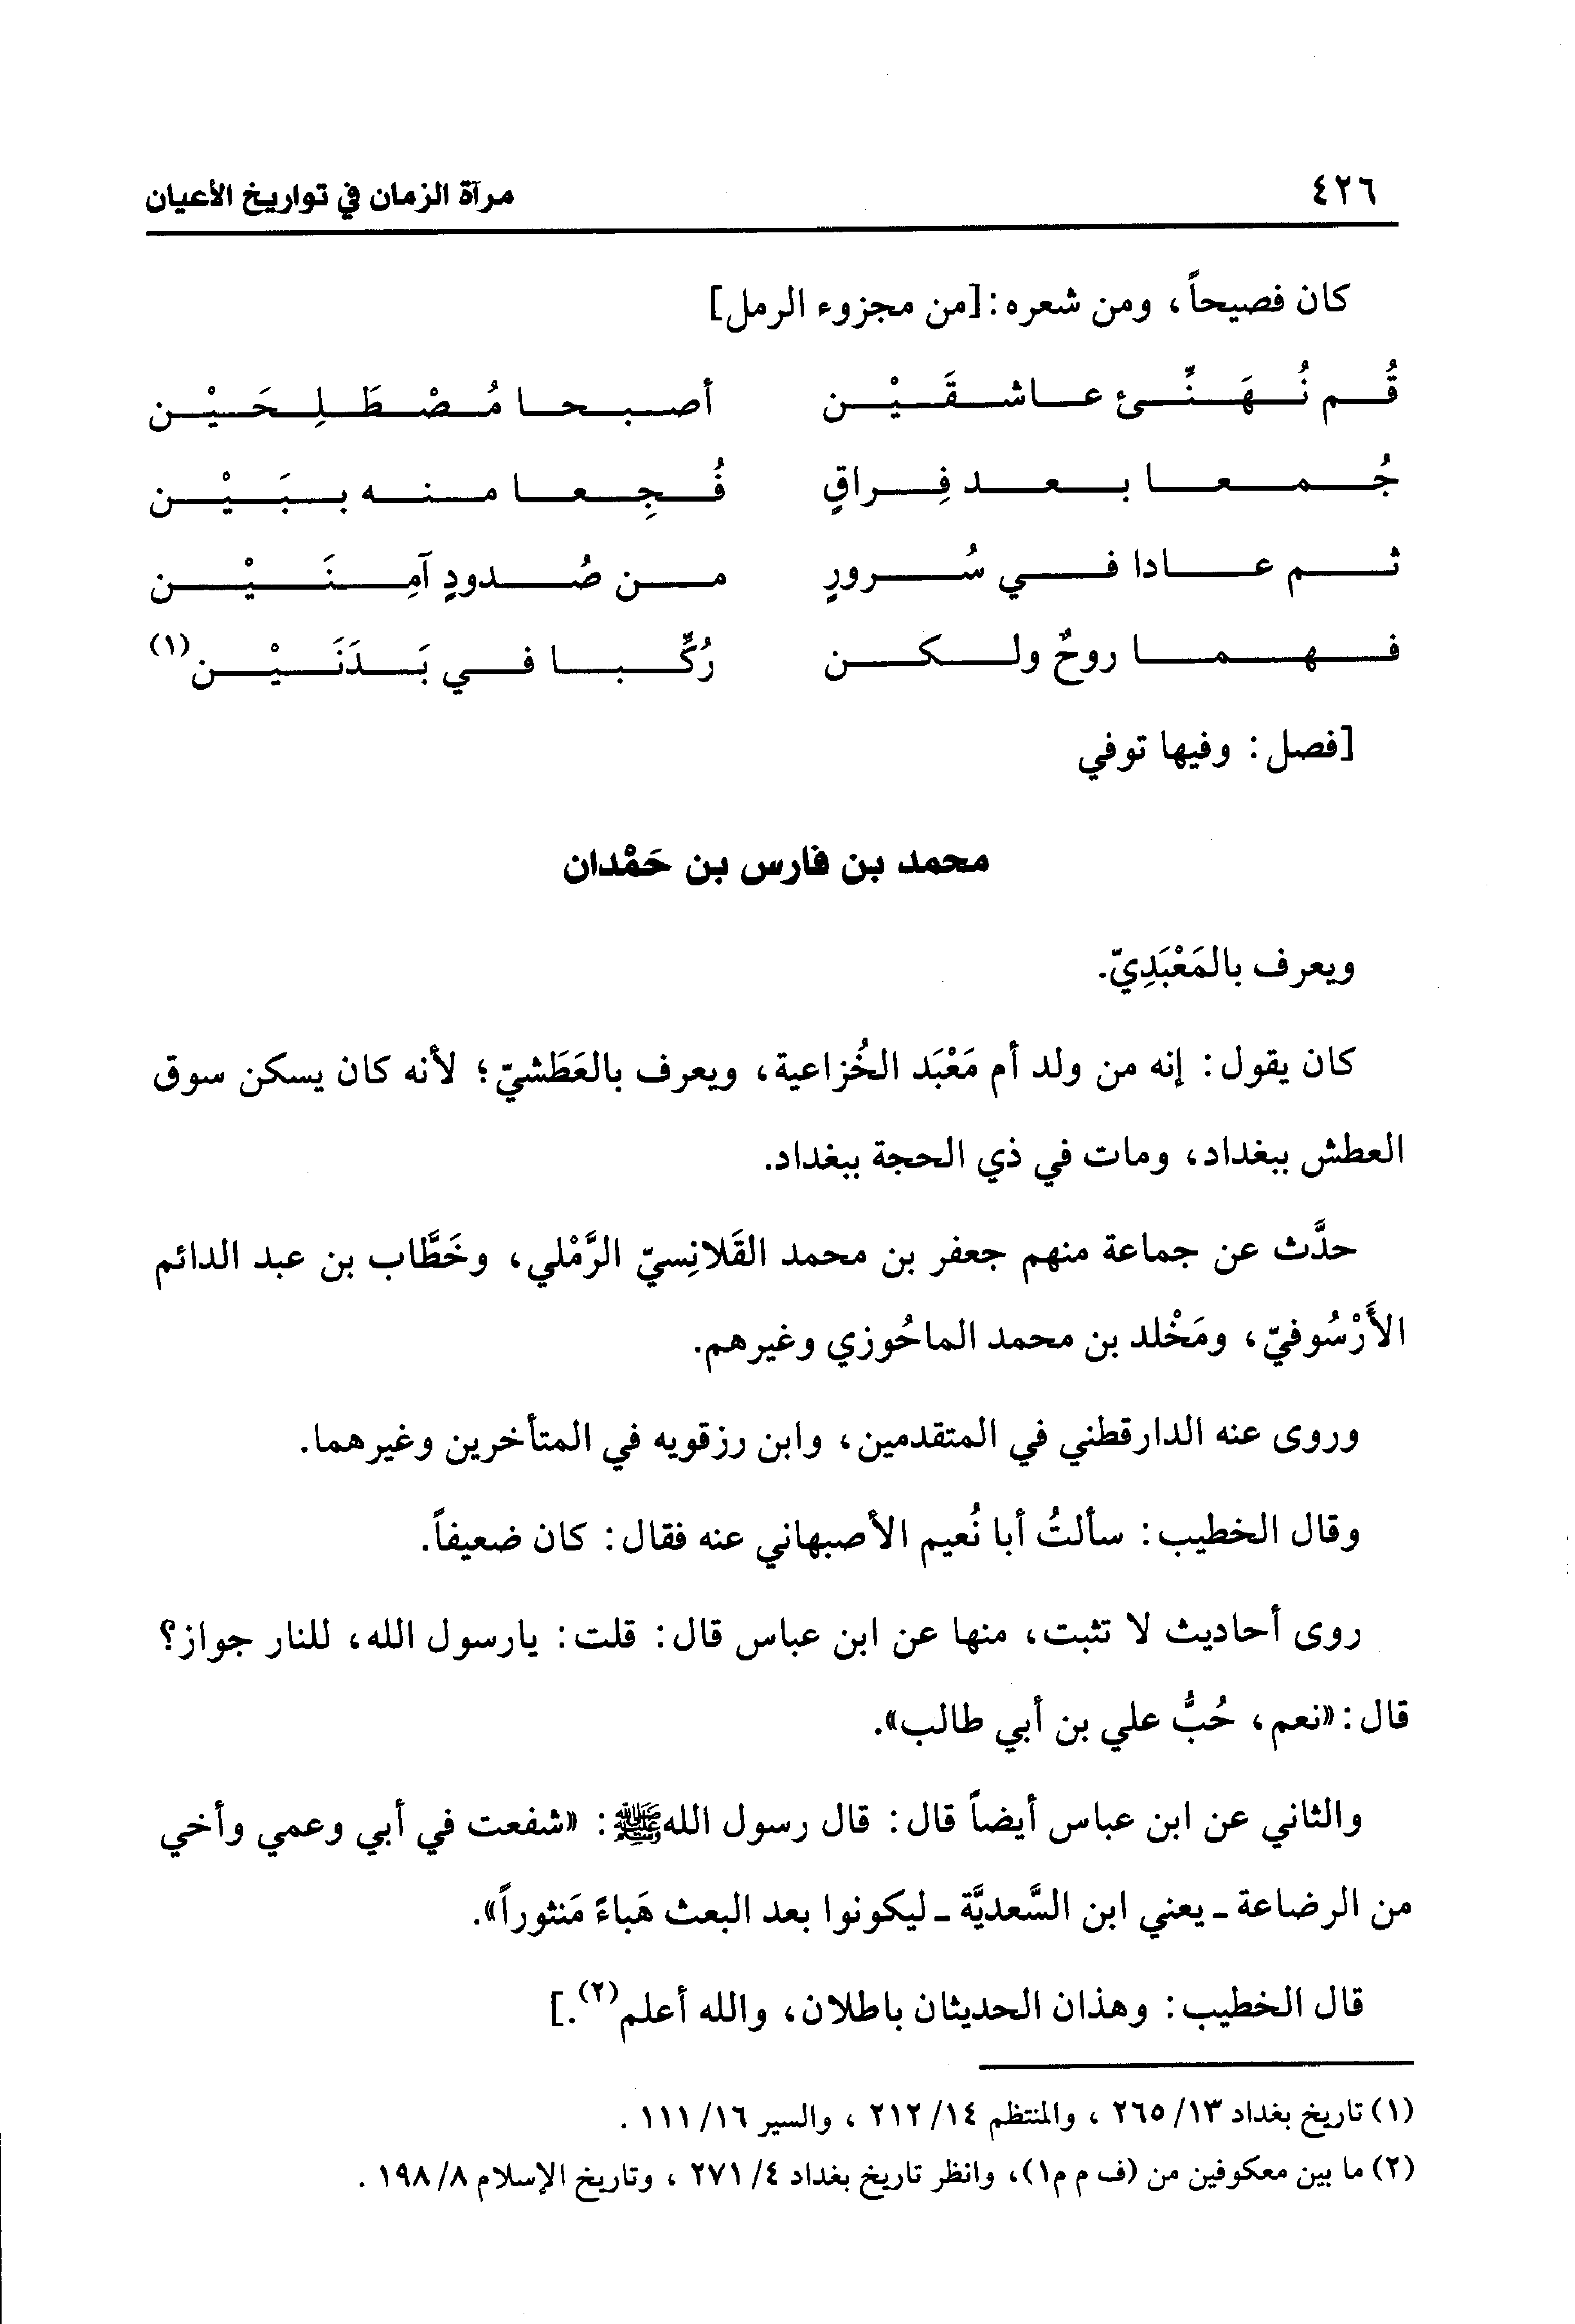 ٤٢٦ مرآة الزمان في تواريخ الأعيان
كان فصيحاً، ومن شعره: [من مجزوء الرمل]
قُم نُهَنِّئ عاشقَيْن أصبحا مُصْطَلِحَيْن
جُمعا بعد فِراقٍ فُجِعا منه ببَيْن
ثم عادا في سُرورٍ من صُدودٍ آمِنَيْن
فهما روحٌ ولكن رُكِّبا في بَدَنَيْن(١)
[فصل: وفيها توفي
محمد بن فارس بن حَمْدان
ويعرف بالمَعْبَدِيّ.
كان يقول: إنه من ولد أم مَعْبَد الخُزاعية، ويعرف بالعَطَشيّ؛ لأنه كان يسكن سوق
العطش ببغداد، ومات في ذي الحجة ببغداد.
حدَّث عن جماعة منهم جعفر بن محمد القَلانِسيّ الرَّمْلي، وخَطَّاب بن عبد الدائم
الأَرْسُوفيّ، ومَخْلد بن محمد الماحُوزي وغيرهم.
وروى عنه الدارقطني في المتقدمين، وابن رزقويه في المتأخرين وغيرهما.
وقال الخطيب: سألتُ أبا نُعيم الأصبهاني عنه فقال: كان ضعيفاً.
روى أحاديث لا تثبت، منها عن ابن عباس قال: قلت: يارسول الله، للنار جواز؟
قال: «نعم، حُبُّ علي بن أبي طالب».
والثاني عن ابن عباس أيضاً قال: قال رسول اللهﷺ: «شفعت في أبي وعمي وأخي
من الرضاعة - يعني ابن السَّعديَّة - ليكونوا بعد البعث هَباءً مَنثوراً».
قال الخطيب: وهذان الحديثان باطلان، والله أعلم(٢).]
(١) تاريخ بغداد ١٣/ ٢٦٥ ، والمنتظم ١٤/ ٢١٢ ، والسير ١٦/ ١١١ .
(٢) ما بين معكوفين من (ف م م١)، وانظر تاريخ بغداد ٤/ ٢٧١ ، وتاريخ الإسلام ٨/ ١٩٨ .